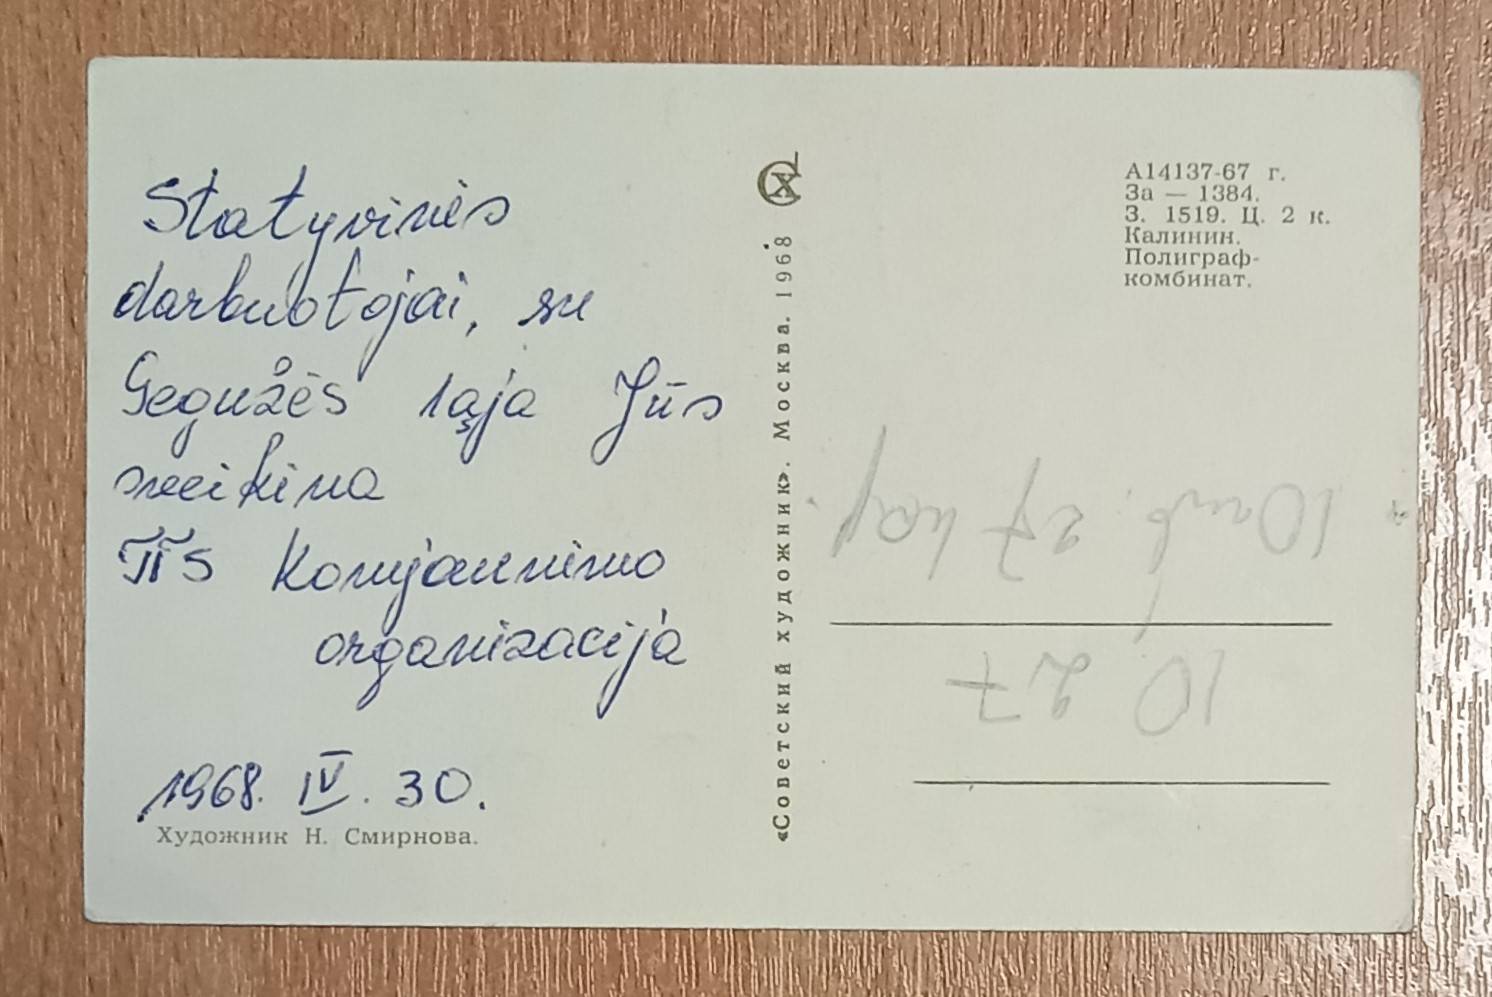 Statyvinės
darbuotojai, su
Gegužės 1ąja Jūs
sveikina
TFS Komjaunimo
organizacija
1968. IV. 30.
Художник Н. Смирнова.
«Советский художник». Москва. 1968
А14137-67 г.
За — 1384.
З. 1519. Ц. 2 к.
Калинин.
Полиграф-
комбинат.
27
10
10 27